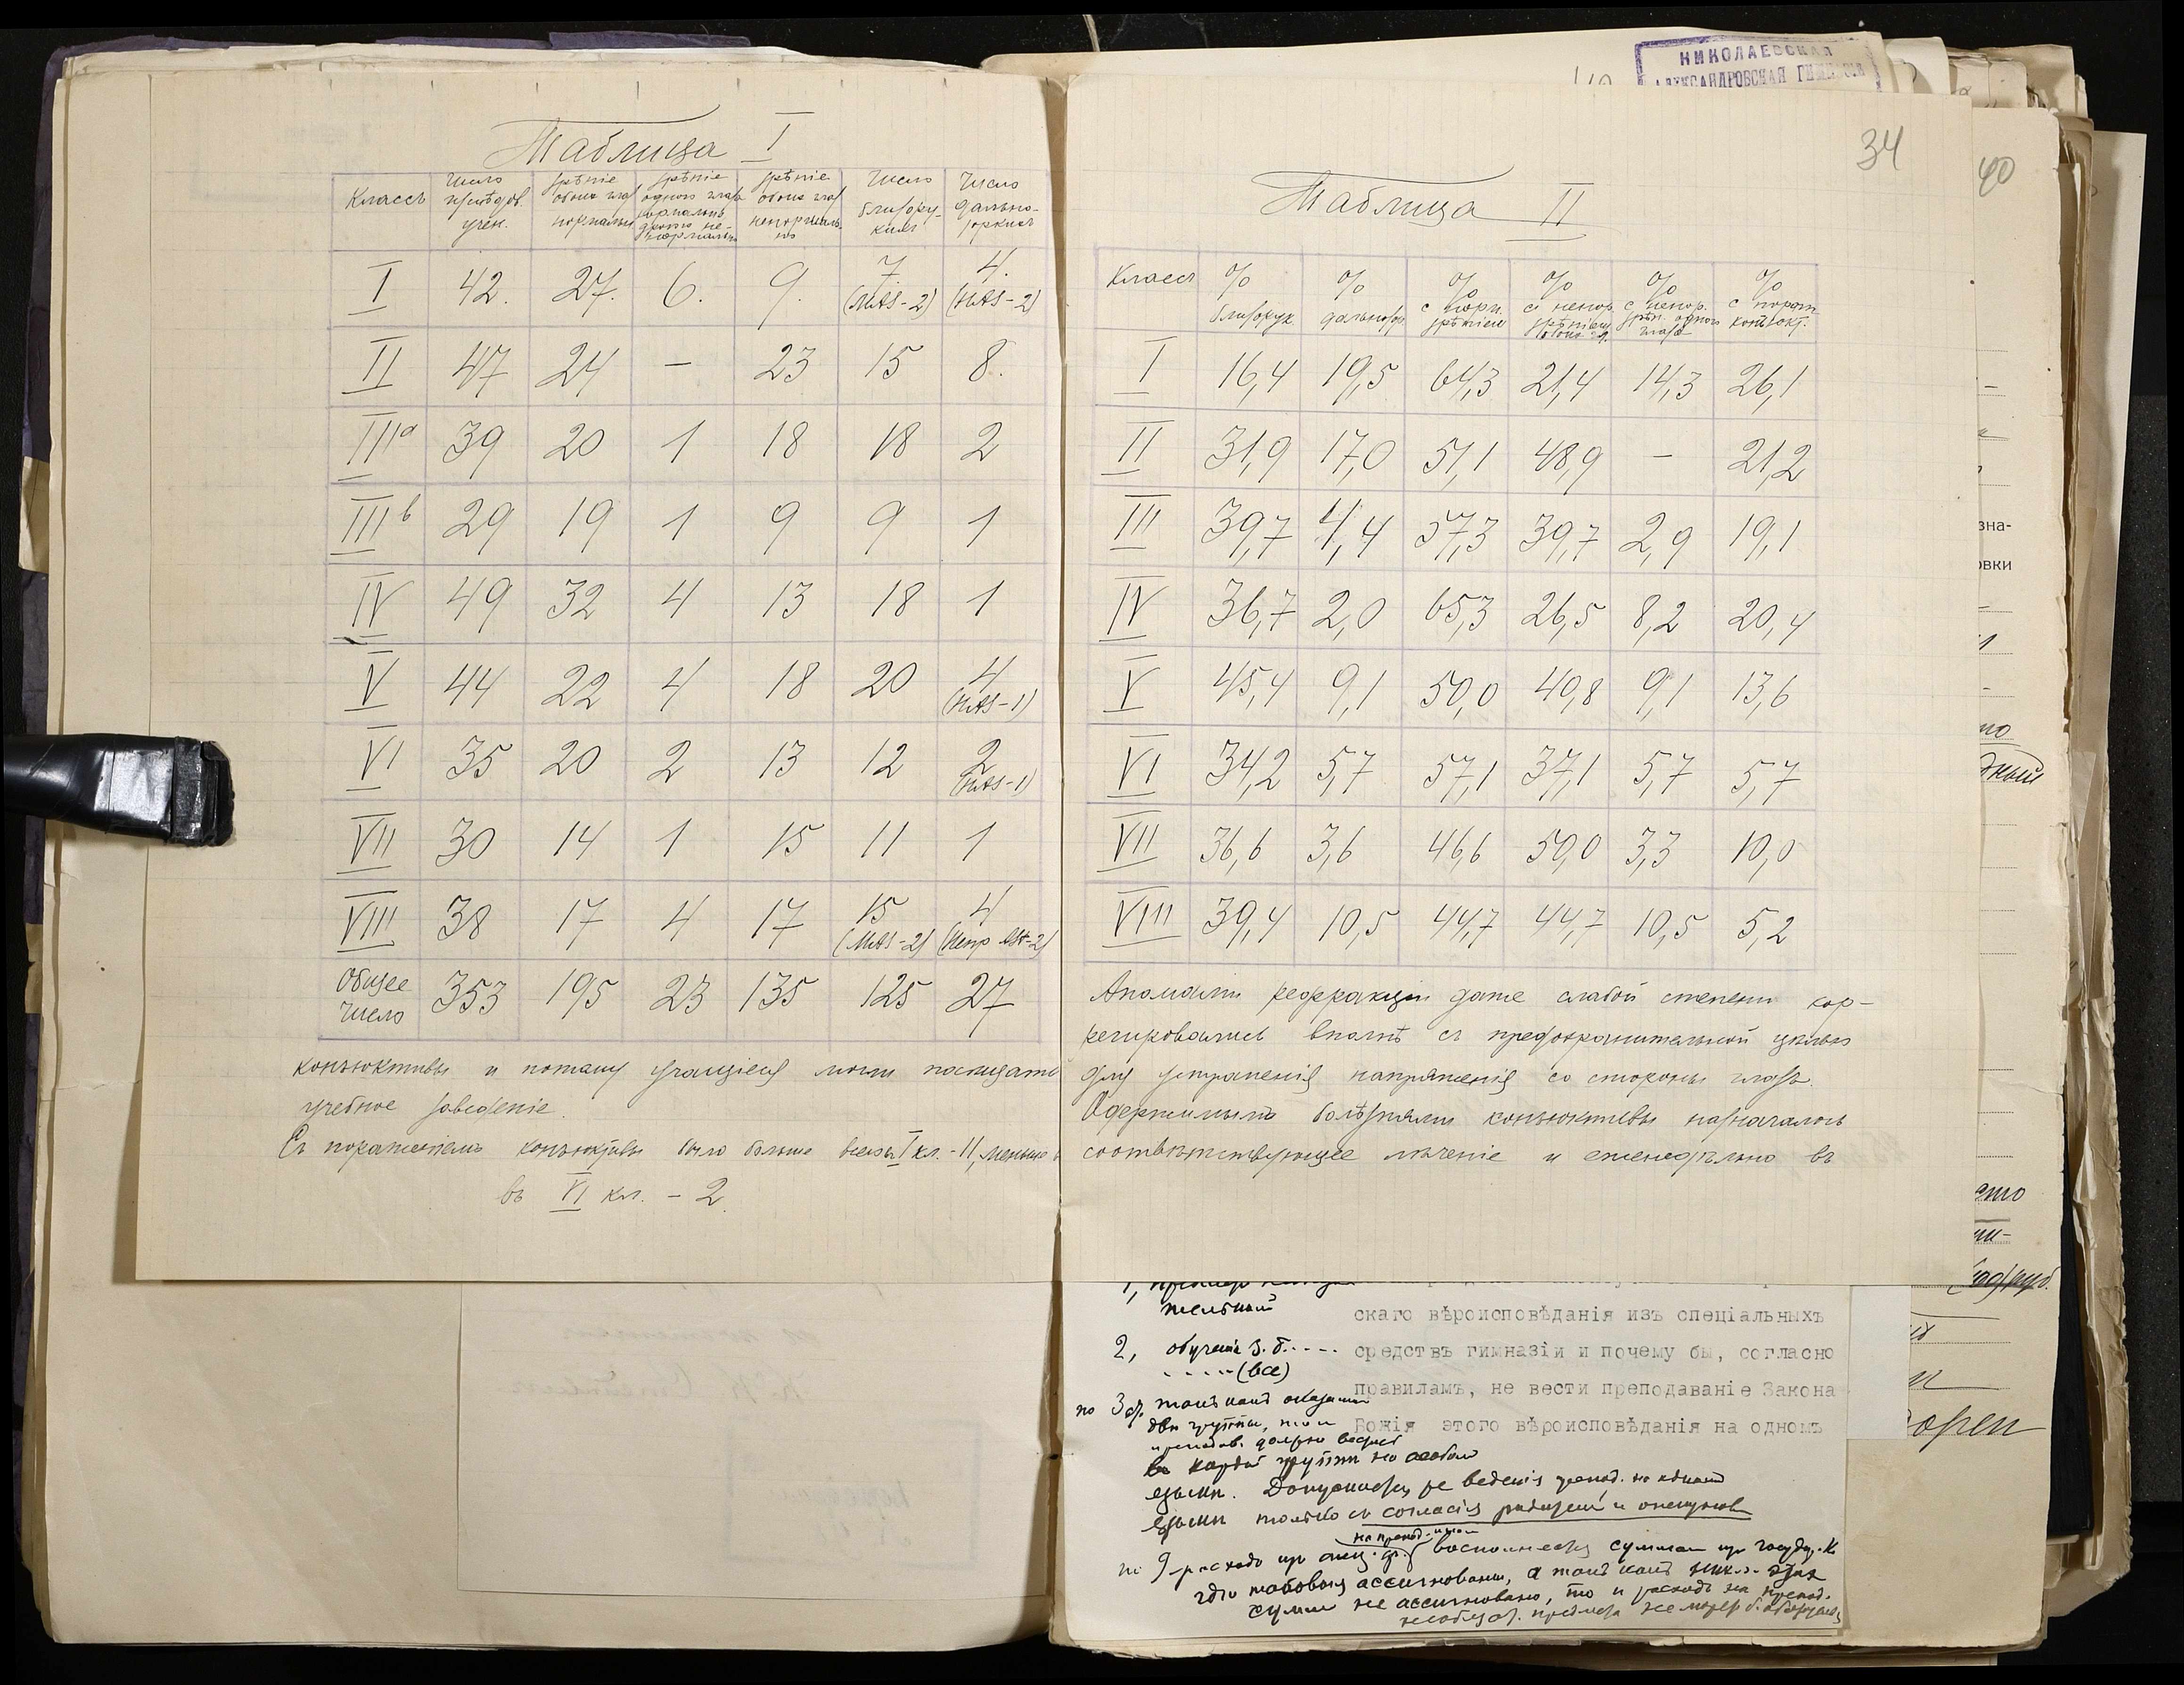 Таблица I
Классъ | Число изслѣдов. учен. | зрѣніе обоих глаз нормальн | зрѣніе одного глаза нормальнь другого не-нормально | зрѣніе обоих глаз ненормаль-но | Число близору-кихъ | Число дально-зоркихъ
I | 42. | 27. | 6. | 9. | 7. (MAS-2) | 4. (HAS-2)
II | 47 | 24 | — | 23 | 15 | 8.
IIIа | 39 | 20 | 1 | 18 | 18 | 2
III в | 29 | 19 | 1 | 9 | 9 | 1
IV | 49 | 32 | 4 | 13 | 18 | 1
V | 44 | 22 | 4 | 18 | 20 | 4 (HAS-1)
VI | 35 | 20 | 2 | 13 | 12 | 2 (HAS-1)
VII | 30 | 14 | 1 | 15 | 11 | 1
VIII | 38 | 17 | 4 | 17 | 15 (MAS-2) | 4
Общее число | 353 | 195 | 23 | 135 | 125 | 27
конъюктивы и потому учащіеся могли посещать
учебное заведеніе.
Съ пораженіемъ конъюктивы было больше всего въ I кл. - 11, меньше
въ VI кл. - 2.
НИКОЛАЕВСКАЯ
АЛЕКСАНДРОВСКАЯ ГИМНАЗІЯ
34
40
Таблица II
Классъ | % близорук | % дальнозор | % с норм. зрѣніем | % съ ненор. зрѣніем обоих гл. | % с ненор. зрѣн. одного глаза | % с пораж. конъюкт.
I | 16,4 | 19,5 | 64,3 | 21,4 | 14,3 | 26,1
II | 31,9 | 17,0 | 51,1 | 48,9 | — | 21,2
III | 39,7 | 4,4 | 57,3 | 39,7 | 2,9 | 19,1
IV | 36,7 | 2,0 | 65,3 | 26,5 | 8,2 | 20,4
V | 45,4 | 9,1 | 50,0 | 40,8 | 9,1 | 13,6
VI | 34,2 | 5,7 | 57,1 | 37,1 | 5,7 | 5,7
VII | 36,6 | 3,6 | 46,6 | 50,0 | 3,3 | 10,0
VIII | 39,4 | 10,5 | 44,7 | 44,7 | 10,5 | 5,2
Аномаліи рефракціи даже слабой степени кор-
регировались вполнѣ съ предохранительной цѣлью
для устраненія напряженія со стороны глазъ.
Одержимымъ болѣзнями конъюктивы назначалось
соотвѣтствующее лѣченіе и еженедѣльно въ
скаго вѣроисповѣданія изъ спеціальныхъ
2, обученіе З. Б.
средствъ гимназіи и почему бы, согласно
(все)
правиламъ, не вести преподаваніе Закона
Божія этого вѣроисповѣданія на одномъ
две группы, то и
преподав. должно вестись
в каждой группѣ на особом
языкѣ. Допускается же веденіе препод. на одномъ
языкѣ только съ согласія родителей и опекуновъ
суммы не ассигновано, то и расходъ на препод.
зна-
овки